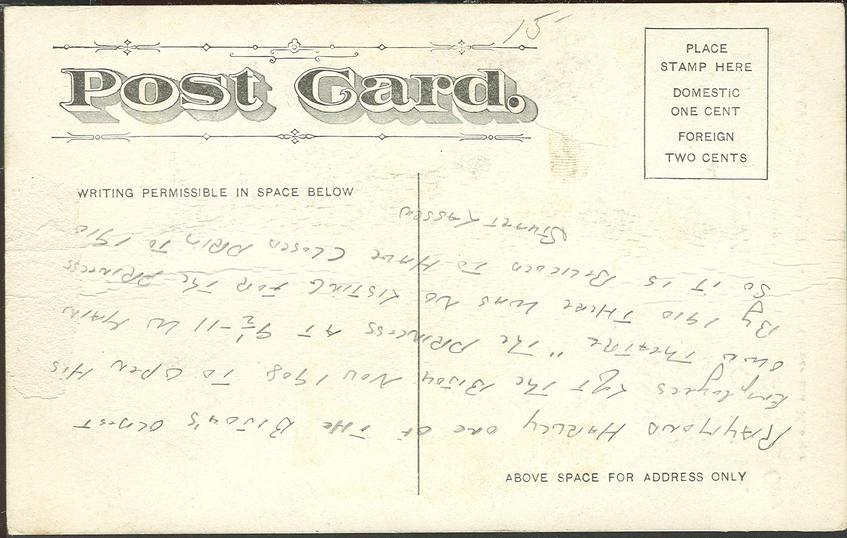 15
Post Card.
PLACE
STAMP HERE
DOMESTIC
ONE CENT
FOREIGN
TWO CENTS
WRITING PERMISSIBLE IN SPACE BELOW
RAYMOND HARLEY ONE OF THE BIJOU'S OLDEST
EMPLOYEES LEFT THE BIJOU NOV 1908 TO OPEN HIS
OWN THEATRE "THE PRINCESS AT 9½-11 W MAIN
By 1910 THERE WAS NO LISTING FOR THE PRINCESS
SO IT IS BELIEVED TO HAVE CLOSED PRIN TO 1910
STUART
ABOVE SPACE FOR ADDRESS ONLY